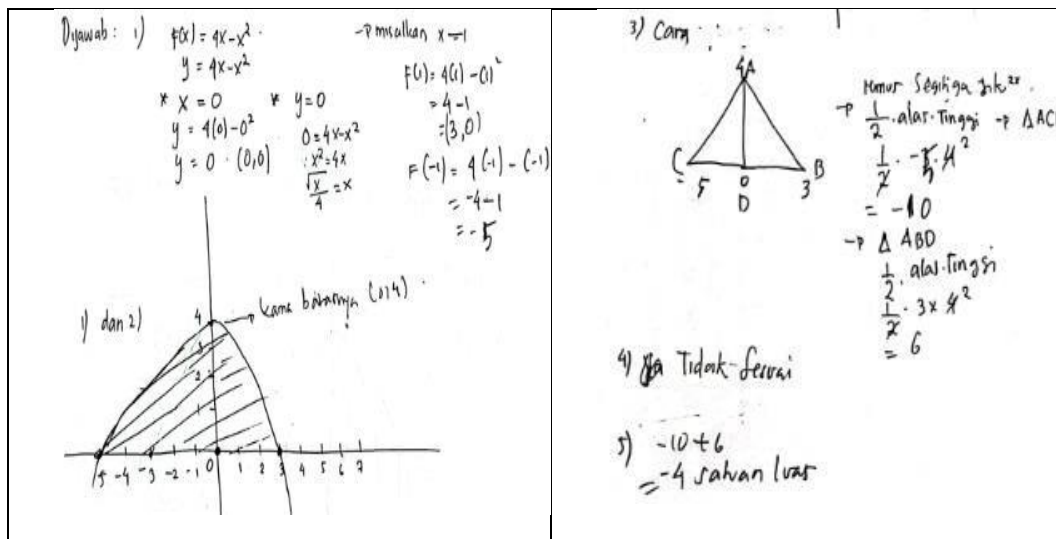 Dijawab: 1) f(x) = 4x-x²
y = 4x-x²
* x = 0
y = 4(0)-0²
y = 0 · (0,0)
* y=0
0=4x-x²
x²=4x
√x/4 = x
→ misalkan x=1
F(1) = 4(1) - (1)²
= 4-1
=(3,0)
F(-1) = 4(-1) - (-1)
= -4-1
= -5
1) dan 2)
4 → karna batasnya (0,4)
3
2
1
-5 -4 -3 -2 -1 0 1 2 3 4 5 6 7
3) Cara
4A
C B
5 0 3
D
→ rumus segitiga
1/2 . alas . tinggi → ΔAC
1/2 . -5 . 4 2
= -10
→ Δ ABD
1/2 . alas . tinggi
1/2 . 3 x 4 2
= 6
4) Tidak sesuai
5) -10+6
= -4 satuan luas